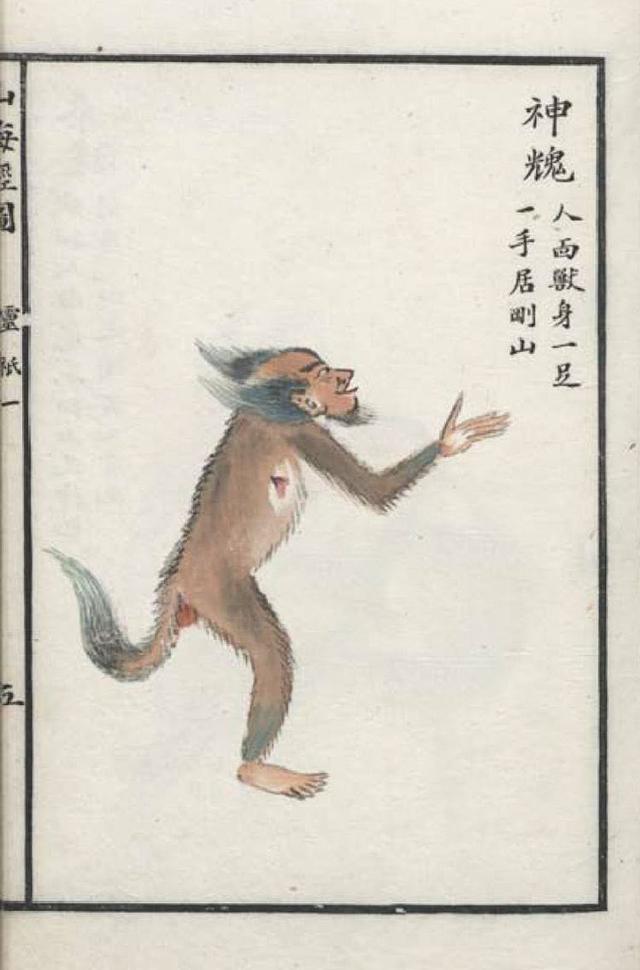 神
人面獸身一足
一手居剛山
山海經圖 靈祇一 五